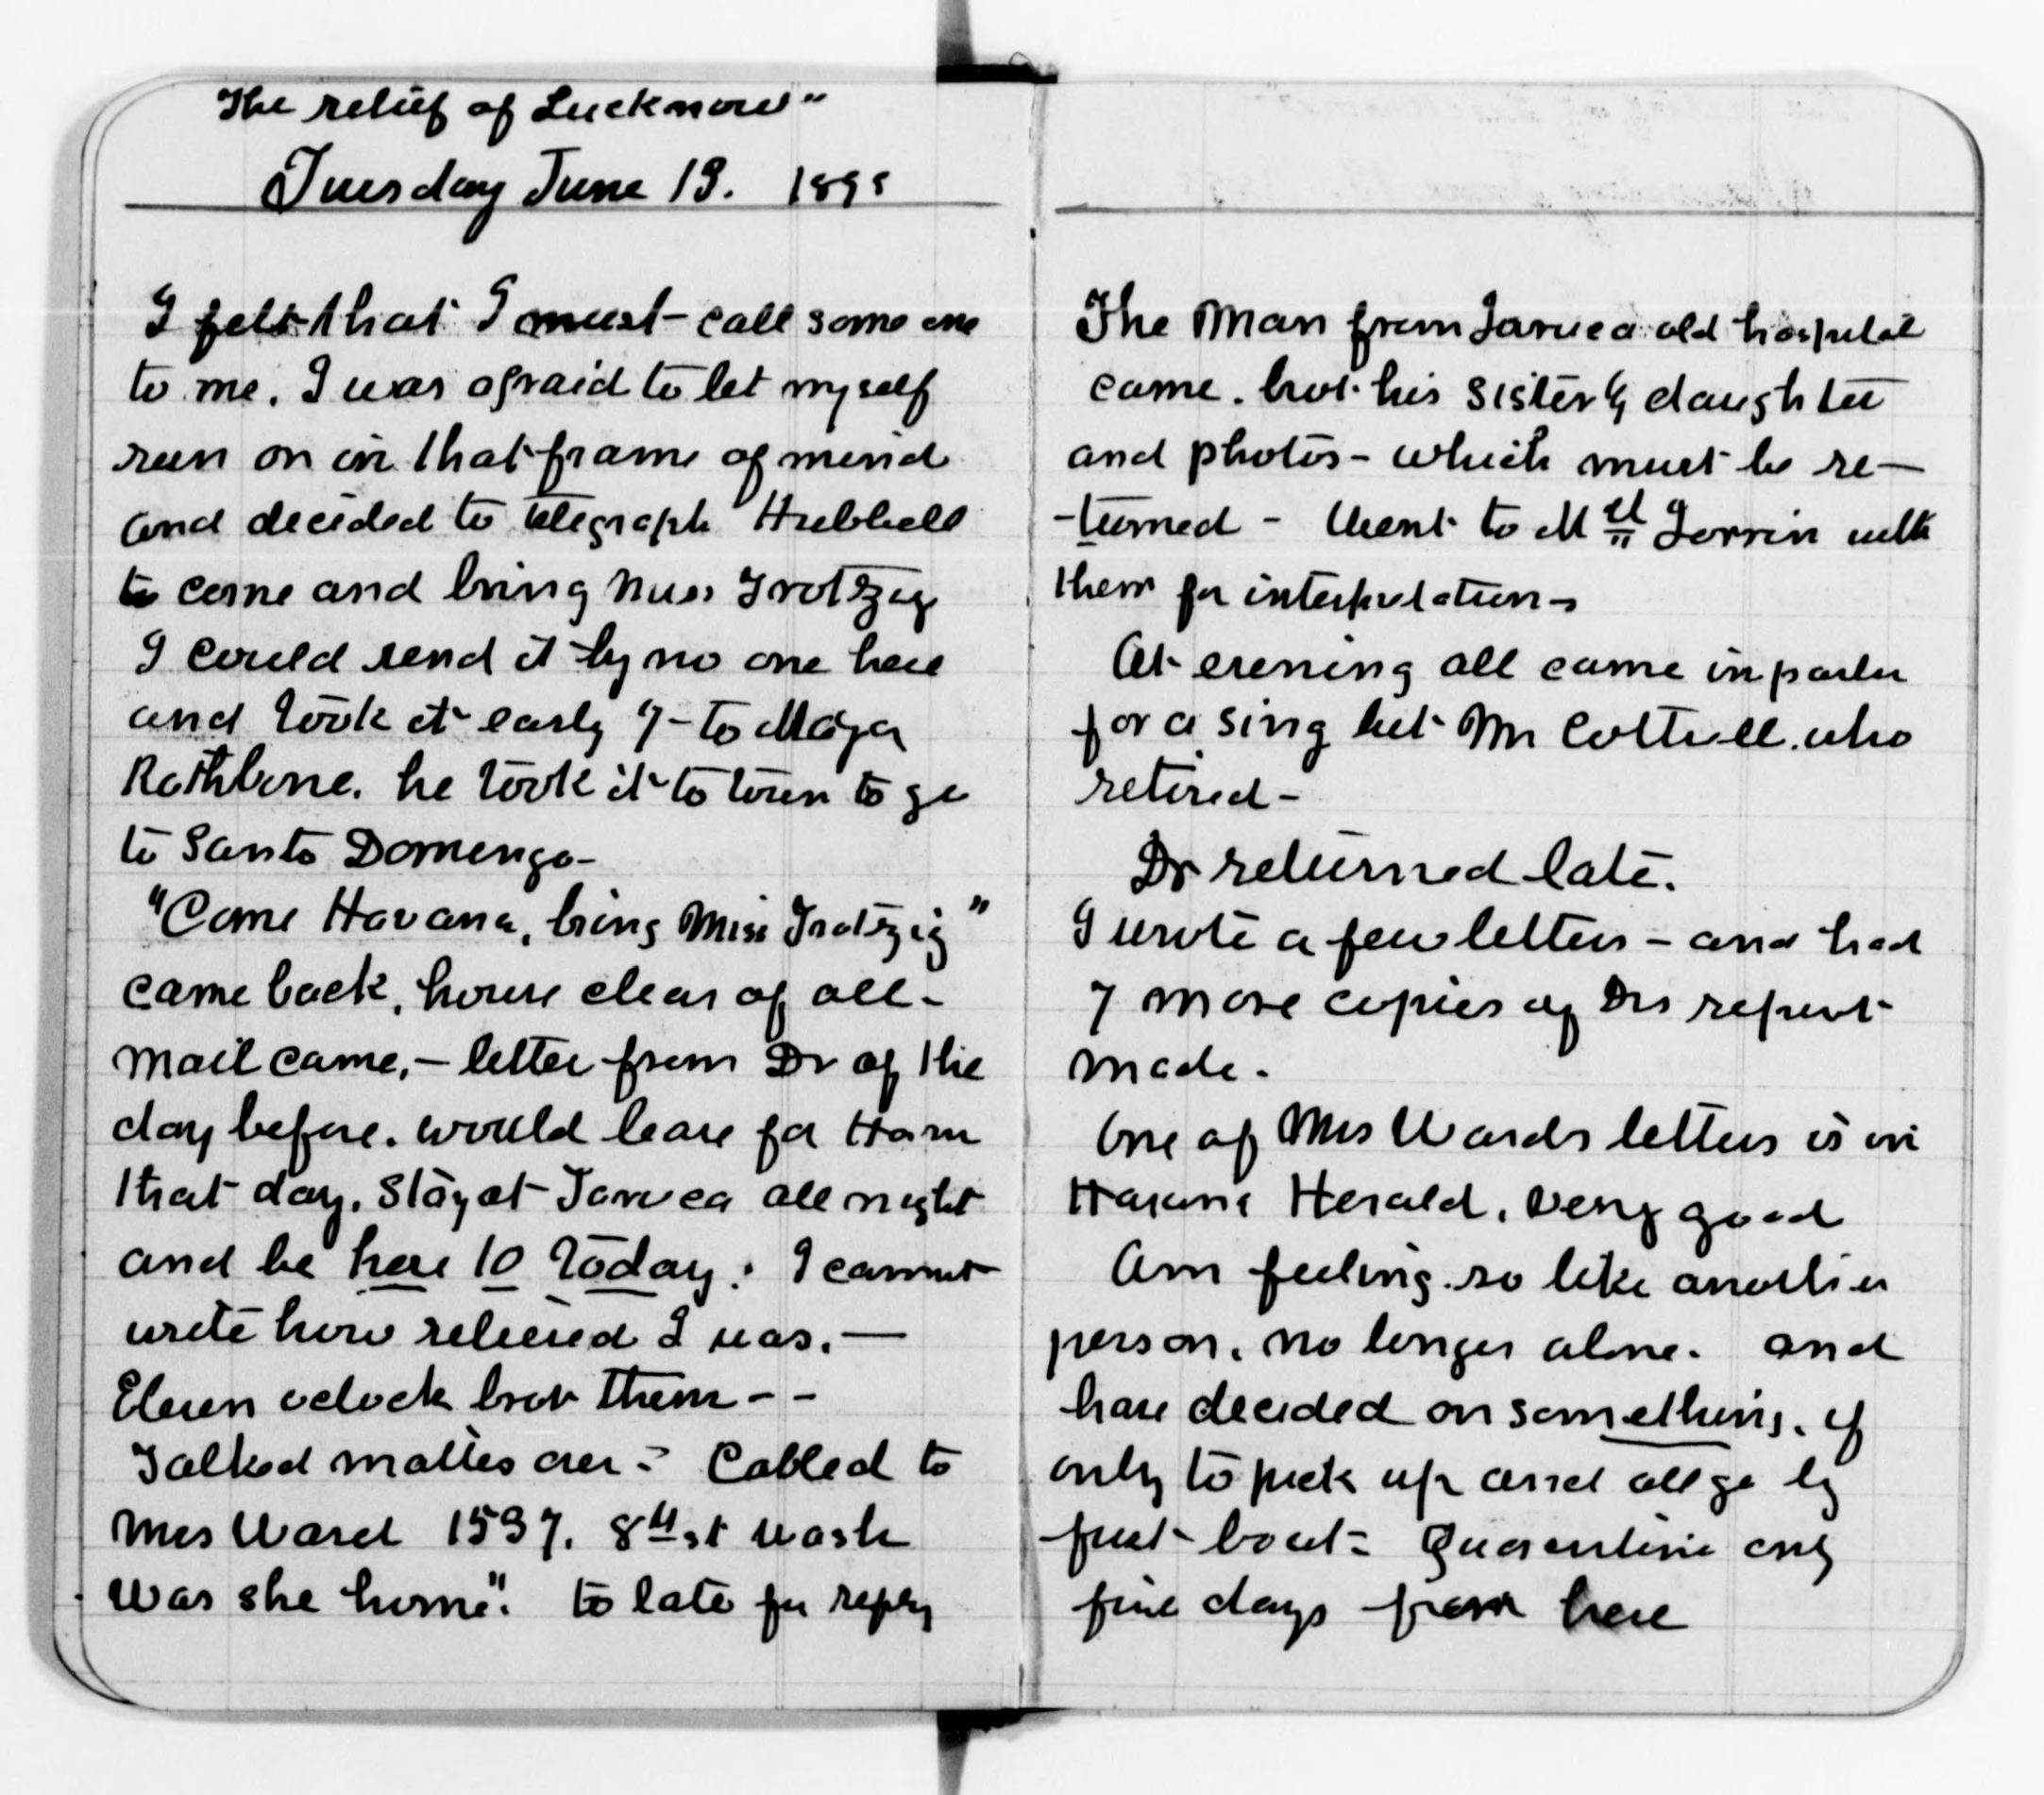 "The relief of Lucknow"
Tuesday June 13. 1899
I felt that I must - call some one
to me. I was afraid to let myself
run on in that frame of mind
and decided to telegraph Hubbell
to come and bring Miss Trotzig
I could send it by no one here
and took it early 7 - to Major
Rathbone. he took it to town to go
to Santo Domengo -
"Come Havana, bring Miss Trotzig"
came back, house clear of all -
mail came, - letter from Dr of the
day before. would leave for Havn
that day. Stay at Jaruca all night
and be here 10 today: I cannot
write how relieved I was. —
Eleven oclock brot them - -
Talked matters over - Cabled to
Mrs Ward 1537. 8th st Wash
was she home". to late for reply
The man from Jaruca old hospital
came. brot his sister & daughter
and photos - which must be re -
- turned - Went to Mll Torrin with
them for interpretation -
At evening all came in parlor
for a sing but Mr Cottrell. who
retired -
Dr returned late.
I wrote a few letters - and had
7 more copies of Drs report
made.
One of Mrs Wards letters is in
Havana Herald. very good
Am feeling so like another
person. no longer alone. and
have decided on something. if
only to pick up and all go by
first boat - Quarentine only
five days from here